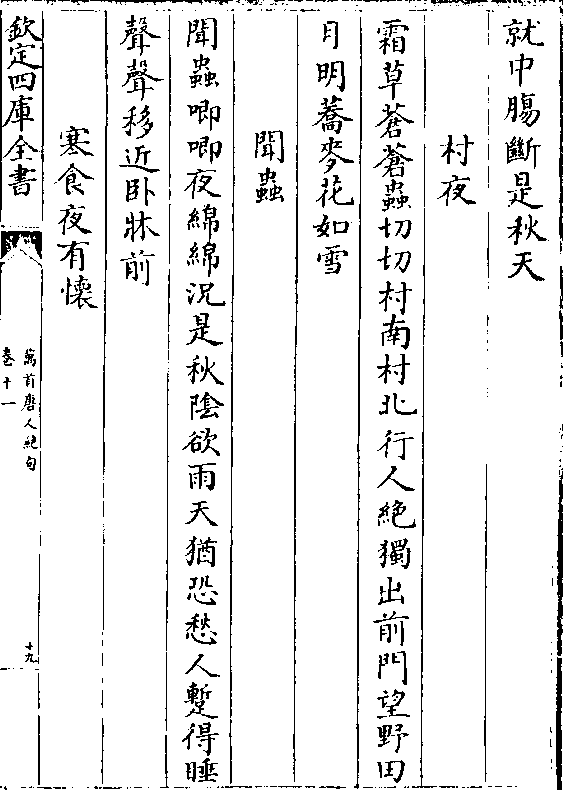 就中腸斷是秋天
村夜
霜草蒼蒼蟲切切村南村北行人絶獨出前門望野田
月明蕎麥花如雪
聞蟲
聞蟲唧唧夜綿綿况是秋隂欲雨天猶恐愁人蹔得睡
聲聲移近卧牀前
寒食夜有懷
欽定四庫全書
萬首唐人絶句
卷十一
十九